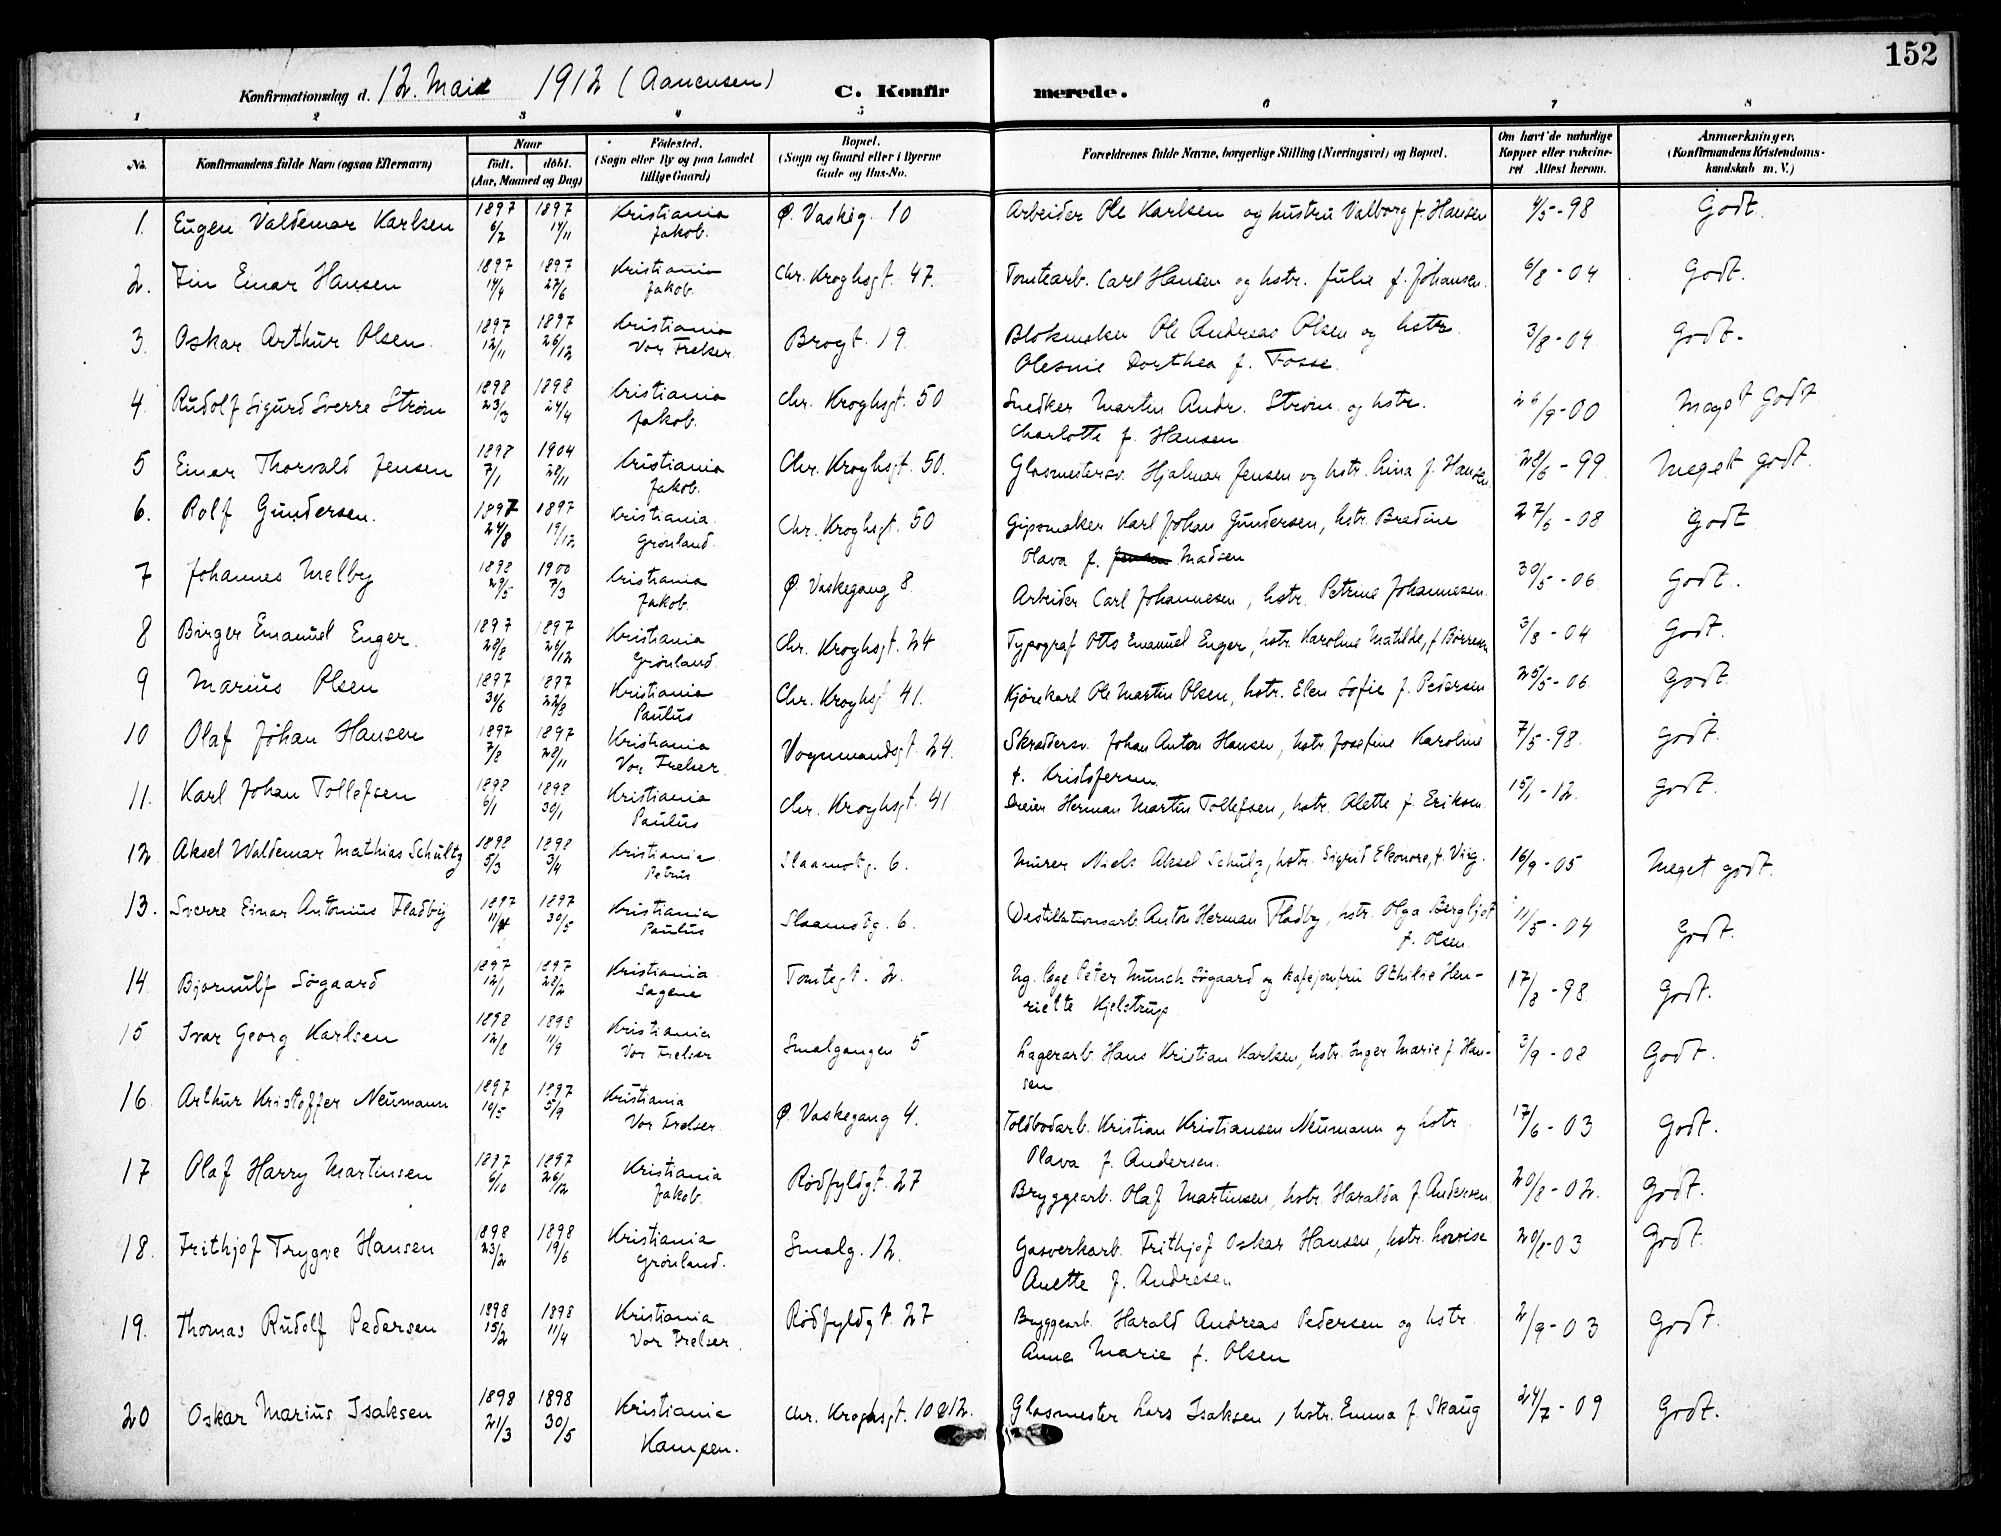 152
Konfirmationsdag d. 12. Mai 1912 (Aanensen) C. Konfirmerede.
1 2 3 4 5 6 7 8
No. Konfirmandens fulde Navn (ogsaa Efternavn) Naar født. døbt. (Aar, Maaned og Dag) Fødested. (Sogn eller By og paa Landet tillige Gaard) Bopæl. (Sogn og Gaard eller i Byerne Gade og Hus-No. Forældrenes fulde Navne, borgerlige Stilling (Næringsvei) og Bopæl. Om havt de naturlige Kopper eller vakcineret. Attest herom. Anmærkninger. (Konfirmandens Kristendomskundskab m. V.)
1. Eugen Valdemar Karlsen 1897 6/7 1897 14/11 Kristiania Jakob. Ø. Vaskeg. 10 Arbeider Ole Karlsen og hustru Valborg f. Hansen 4/5-98 Godt.
2. Fin Einar Hansen 1897 14/4 1897 27/6 Kristiania Jakob. Chr. Kroghsgt. 47. Tomtearb. Carl Hansen og hstr. Julie f. Johansen. 6/8-04 Godt.
3. Oskar Arthur Olsen. 1897 12/11 1897 26/12 Kristiania Vor Frelser Brogt. 19. Blokmaker Ole Andreas Olsen og hstr.
Olesine Dorthea f. Fosse. 3/8-04 Godt.
4. Rudolf Sigurd Sverre Strøm 1898 23/3 1898 24/4 Kristiania Jakob. Chr. Kroghsgt. 50 Snedker Martin Andr. Strøm og hstr.
Charlotte f. Hansen. 26/9-00 Meget Godt
5 Einar Thorvald Jensen 1898 7/1 1904 28/11 Kristiania Jakob. Chr. Kroghsgt. 50. Glasmestersv. Hjalmar Jensen og hstr. Lina f. Hansen. 28/6-99 Meget godt.
6. Rolf Gundersen. 1897 24/8 1897 19/12 Kristiania. Grønland. Chr. Kroghsgt. 50 Gipsmaker Karl Johan Gundersen, hstr. Bredine
Olava f. Madsen 27/6-08 Godt
7 Johannes Melby 1898 29/5 1900 7/3 Kristiania Jakob. Ø. Vaskegang 8. Arbeider Carl Johannesen, hstr. Petrine Johannesen. 30/5-06 Godt.
8 Birger Emanuel Enger. 1897 20/8 1897 26/12 Kristiania Grønland. Chr. Kroghsgt. 24 Typograf Otto Emanuel Enger, hstr. Karoline Matilde, f. Børresen 3/8-04 Godt.
9 Marius Olsen 1897 30/6 1897 22/8 Kristiania Paulus Chr. Kroghsgt 41. Kjørekarl Ole Martin Olsen, hstr. Elen Sofie f. Pedersen 25/5-06 Godt
10 Olaf Johan Hansen 1897 7/8 1897 28/11 Kristiania Vor Frelser Vognmandsgt 24. Skræddersv. Johan Anton Hansen, hstr. Josefine Karoline
f. Kristofersen. 7/5-98. Godt.
11. Karl Johan Tollefsen 1898 6/1 1898 30/1 Kristiania Paulus Chr. Kroghsgt. 41 Dreier Herman Martin Tollefsen, hstr. Alette f. Eriksen. 15/1-12. Godt.
12. Aksel Waldemar Mathias Schultz 1898 5/3 1898 3/4 Kristiania Petrus Slaamotg. 6. Murer Niels Aksel Schulz, hstr. Sigrid Eleonore, f. Viig. 16/9-05 Meget godt.
13. Sverre Einar Antonius Fladby 1897 11/4 1897 30/5 Kristiania Paulus Slaamotg. 6. Destillationsarb. Anton Herman Fladby, hstr. Olga Bergljot
f. Olsen. 11/5-04 Godt.
14. Bjørnulf Søgaard 1897 12/1 1897 28/2 Kristiania. Sagene Tomtegt. 2. Ug. Læge Peter Munch Søgaard og kafejomfru Othilie Hen-
riette Kjelstrup 17/8-98 Godt.
15 Ivar Georg Karlsen 1898 12/8 1898 11/9 Kristiania Vor Frelser Smalgangen 5 Lagerarb. Hans Kristian Karlsen, hstr. Inger Marie f. Han-
sen 3/9-08 Godt.
16. Arthur Kristoffer Neumann 1897 10/5 1897 5/9 Kristiania Vor Frelser. Ø. Vaskegang 4. Toldbodarb. Kristian Kristiansen Neumann og hstr.
Olava f. Andersen. 17/6-03 Godt.
17 Olaf Harry Martinsen 1897 6/10 1897 26/12 Kristiania Jakob. Rødfyldgt. 27 Bryggearb. Olaf Martinsen, hstr. Haralda f. Andersen. 20/8-02. Godt.
18. Frithjof Trygve Hansen 1898 23/2 1898 19/6 Kristiania Grønland. Smalg. 12. Gasverkarb. Frithjof Oskar Hansen, hstr. Lovise
Anette f. Andresen 20/8-03 Godt.
19. Thomas Rudolf Pedersen 1898 15/2 1898 11/4 Kristiania Vor Frelser. Rødfyldgt. 27 Bryggearb. Harald Andreas Pedersen og hstr.
Anna Marie f. Olsen 2/9-03 Godt.
20 Oskar Marius Isaksen 1898 21/3 1898 30/5 Kristiania Kampen. Chr. Kroghsgt. 10 12. Glasmester Lars Isaksen, hstr. Emma f. Skaug 24/7-09 Godt.